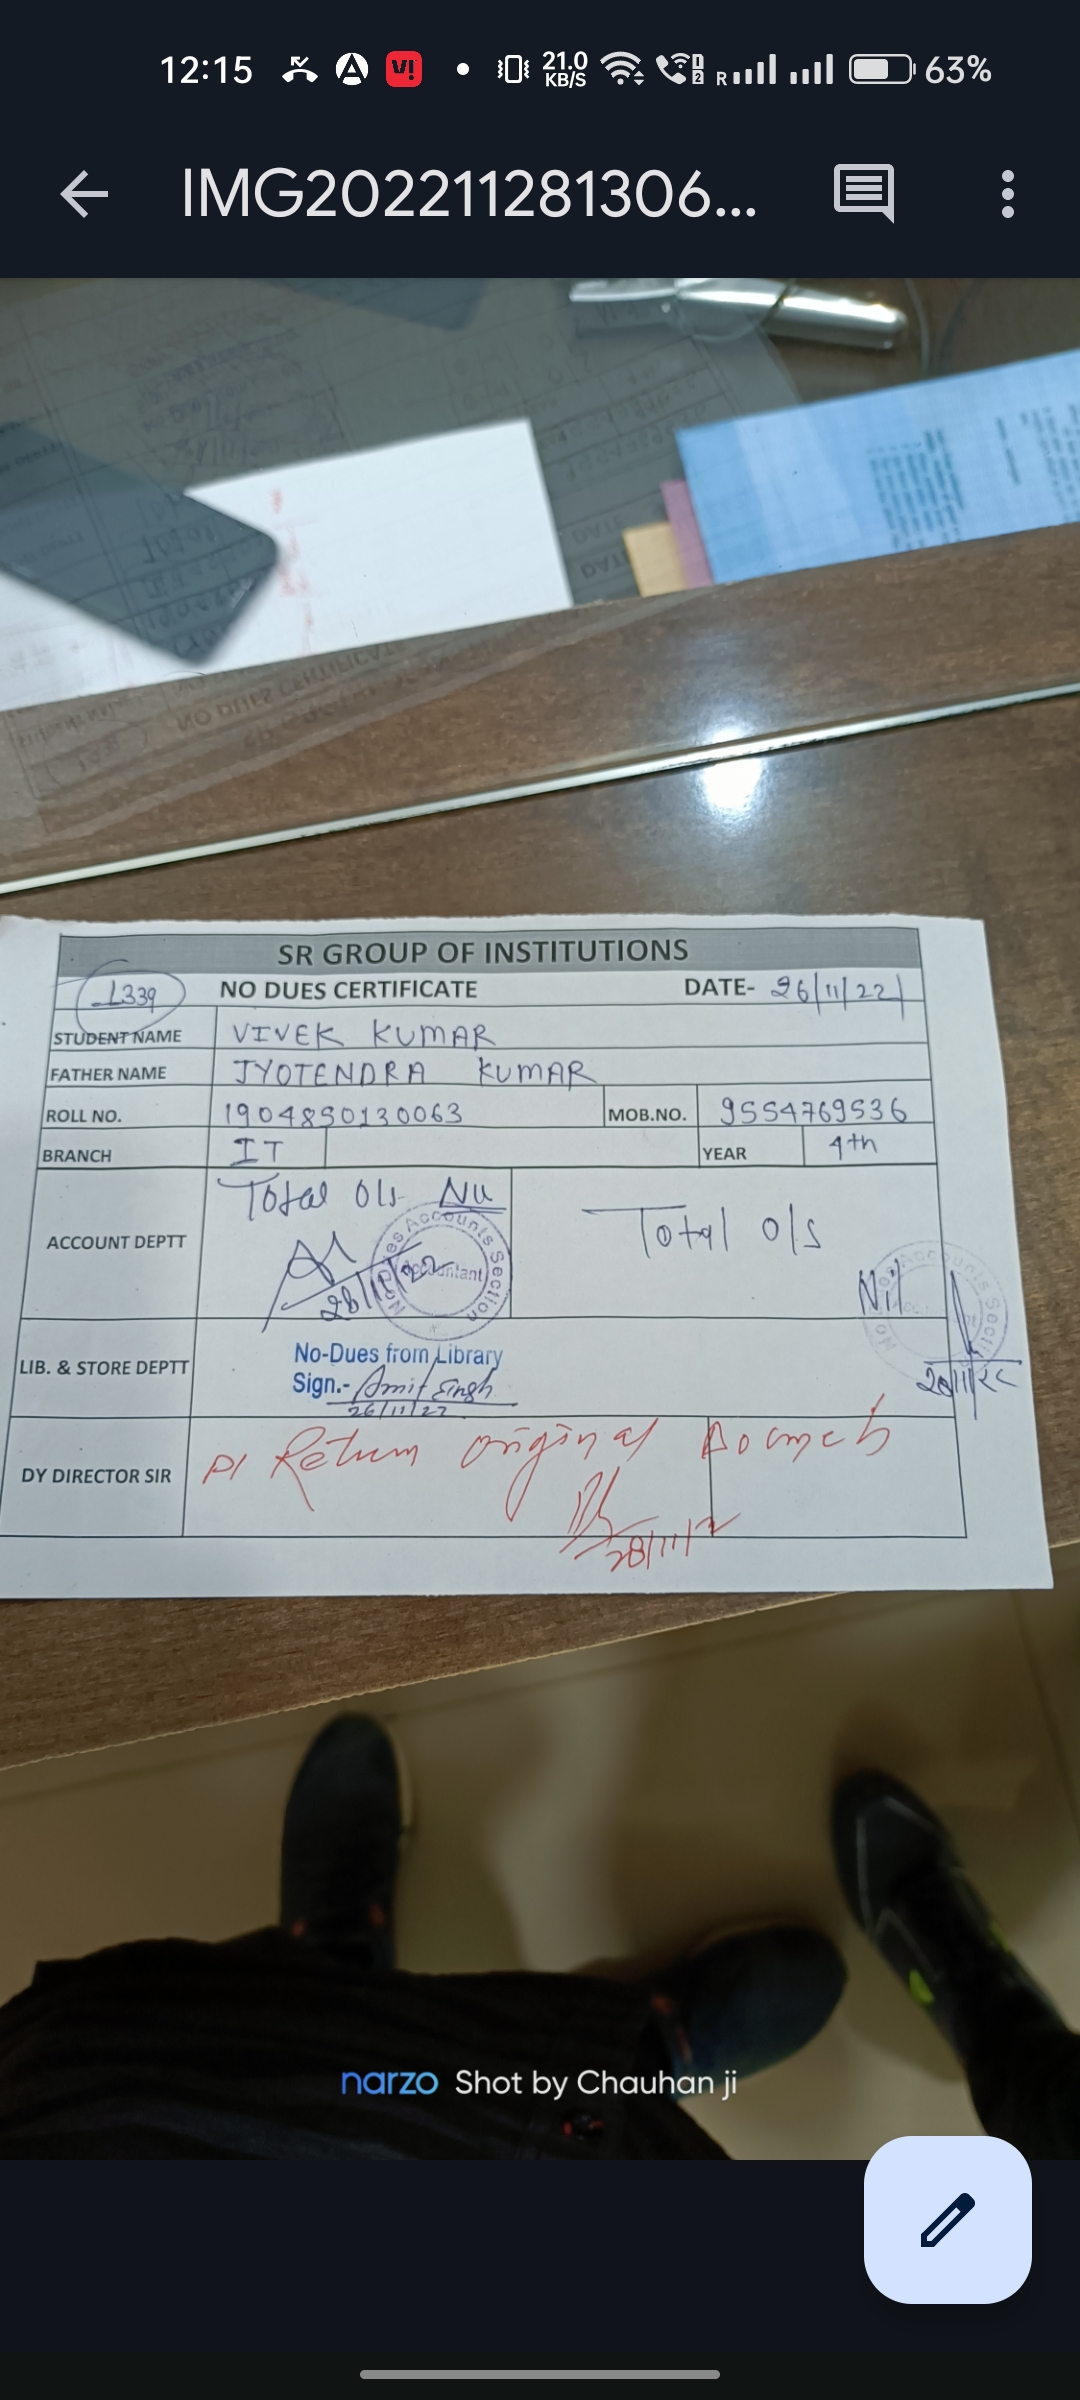 12:15 21.0 KB/S R 63%
IMG202211281306...
SR GROUP OF INSTITUTIONS
1339 NO DUES CERTIFICATE DATE- 26/11/22
STUDENT NAME VIVEK KUMAR
FATHER NAME JYOTENDRA KUMAR
ROLL NO. 1904850130063 MOB.NO. 9554769536
BRANCH IT YEAR 4th
ACCOUNT DEPTT Total O/s Nil Total O/s
No Dues Accounts Section
Accountant
Nil
LIB. & STORE DEPTT No-Dues from Library
Sign.- Amit Singh
26/11/22
DY DIRECTOR SIR Pl Return original
28/11/2
narzo Shot by Chauhan ji